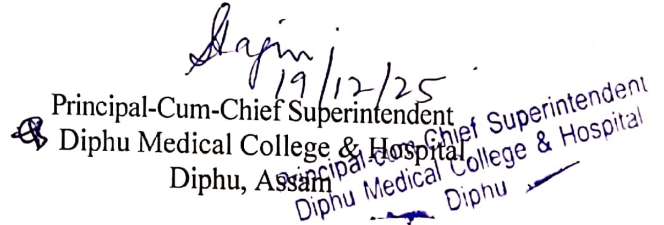 19/12/25
Principal-Cum-Chief Superintendent
Diphu Medical College & Hospital,
Diphu, Assam
Principal-Cum-Chief Superintendent
Diphu Medical College & Hospital
Diphu